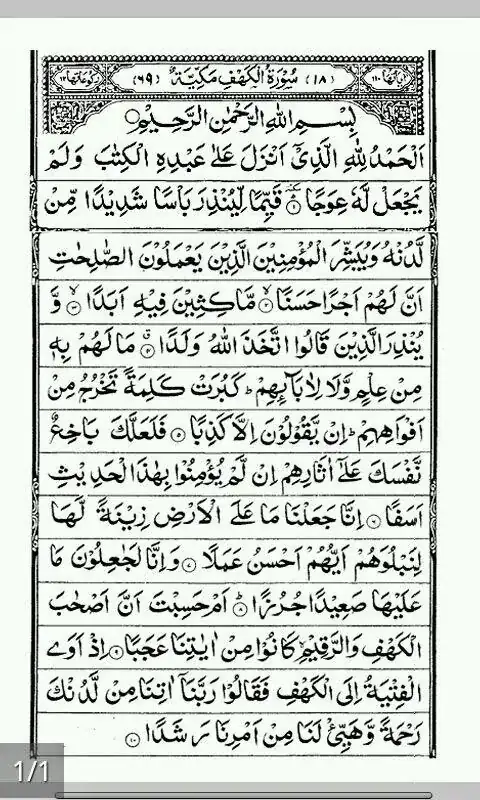 اٰیَاتُهَا ١١٠ (١٨) سُوْرَةُ الْكَهْفِ مَكِّيَّةٌ (٦٩) رُكُوْعَاتُهَا ١٢
بِسْمِ اللّٰهِ الرَّحْمٰنِ الرَّحِيْمِ
اَلْحَمْدُ لِلّٰهِ الَّذِيْۤ اَنْزَلَ عَلٰى عَبْدِهِ الْكِتٰبَ وَلَمْ
يَجْعَلْ لَّهٗ عِوَجًا ١ قَيِّمًا لِّيُنْذِرَ بَاْسًا شَدِيْدًا مِّنْ
لَّدُنْهُ وَيُبَشِّرَ الْمُؤْمِنِيْنَ الَّذِيْنَ يَعْمَلُوْنَ الصّٰلِحٰتِ
اَنَّ لَهُمْ اَجْرًا حَسَنًا ٢ مَّاكِثِيْنَ فِيْهِ اَبَدًا ٣ وَّ
يُنْذِرَ الَّذِيْنَ قَالُوا اتَّخَذَ اللّٰهُ وَلَدًا ٤ مَا لَهُمْ بِهٖ
مِنْ عِلْمٍ وَّلَا لِاٰبَآئِهِمْ ؕ كَبُرَتْ كَلِمَةً تَخْرُجُ مِنْ
اَفْوَاهِهِمْ ؕ اِنْ يَّقُوْلُوْنَ اِلَّا كَذِبًا ٥ فَلَعَلَّكَ بَاخِعٌ
نَّفْسَكَ عَلٰۤى اٰثَارِهِمْ اِنْ لَّمْ يُؤْمِنُوْا بِهٰذَا الْحَدِيْثِ
اَسَفًا ٦ اِنَّا جَعَلْنَا مَا عَلَى الْاَرْضِ زِيْنَةً لَّهَا
لِنَبْلُوَهُمْ اَيُّهُمْ اَحْسَنُ عَمَلًا ٧ وَاِنَّا لَجٰعِلُوْنَ مَا
عَلَيْهَا صَعِيْدًا جُرُزًا ٨ اَمْ حَسِبْتَ اَنَّ اَصْحٰبَ
الْكَهْفِ وَالرَّقِيْمِ كَانُوْا مِنْ اٰيٰتِنَا عَجَبًا ٩ اِذْ اَوَى
الْفِتْيَةُ اِلَى الْكَهْفِ فَقَالُوْا رَبَّنَاۤ اٰتِنَا مِنْ لَّدُنْكَ
رَحْمَةً وَّهَيِّئْ لَنَا مِنْ اَمْرِنَا رَشَدًا ١٠
1/1